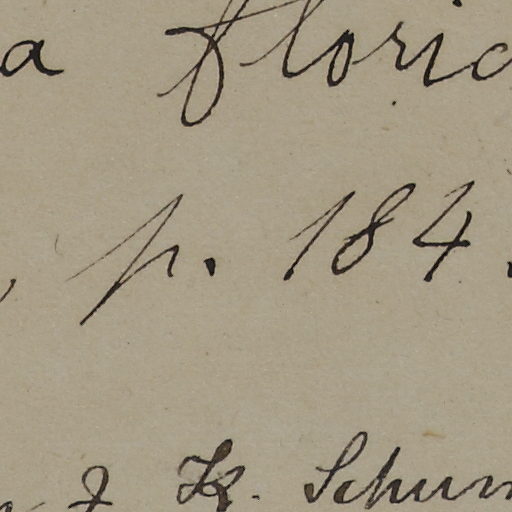 a floric
, p. 184.
& K. Schum